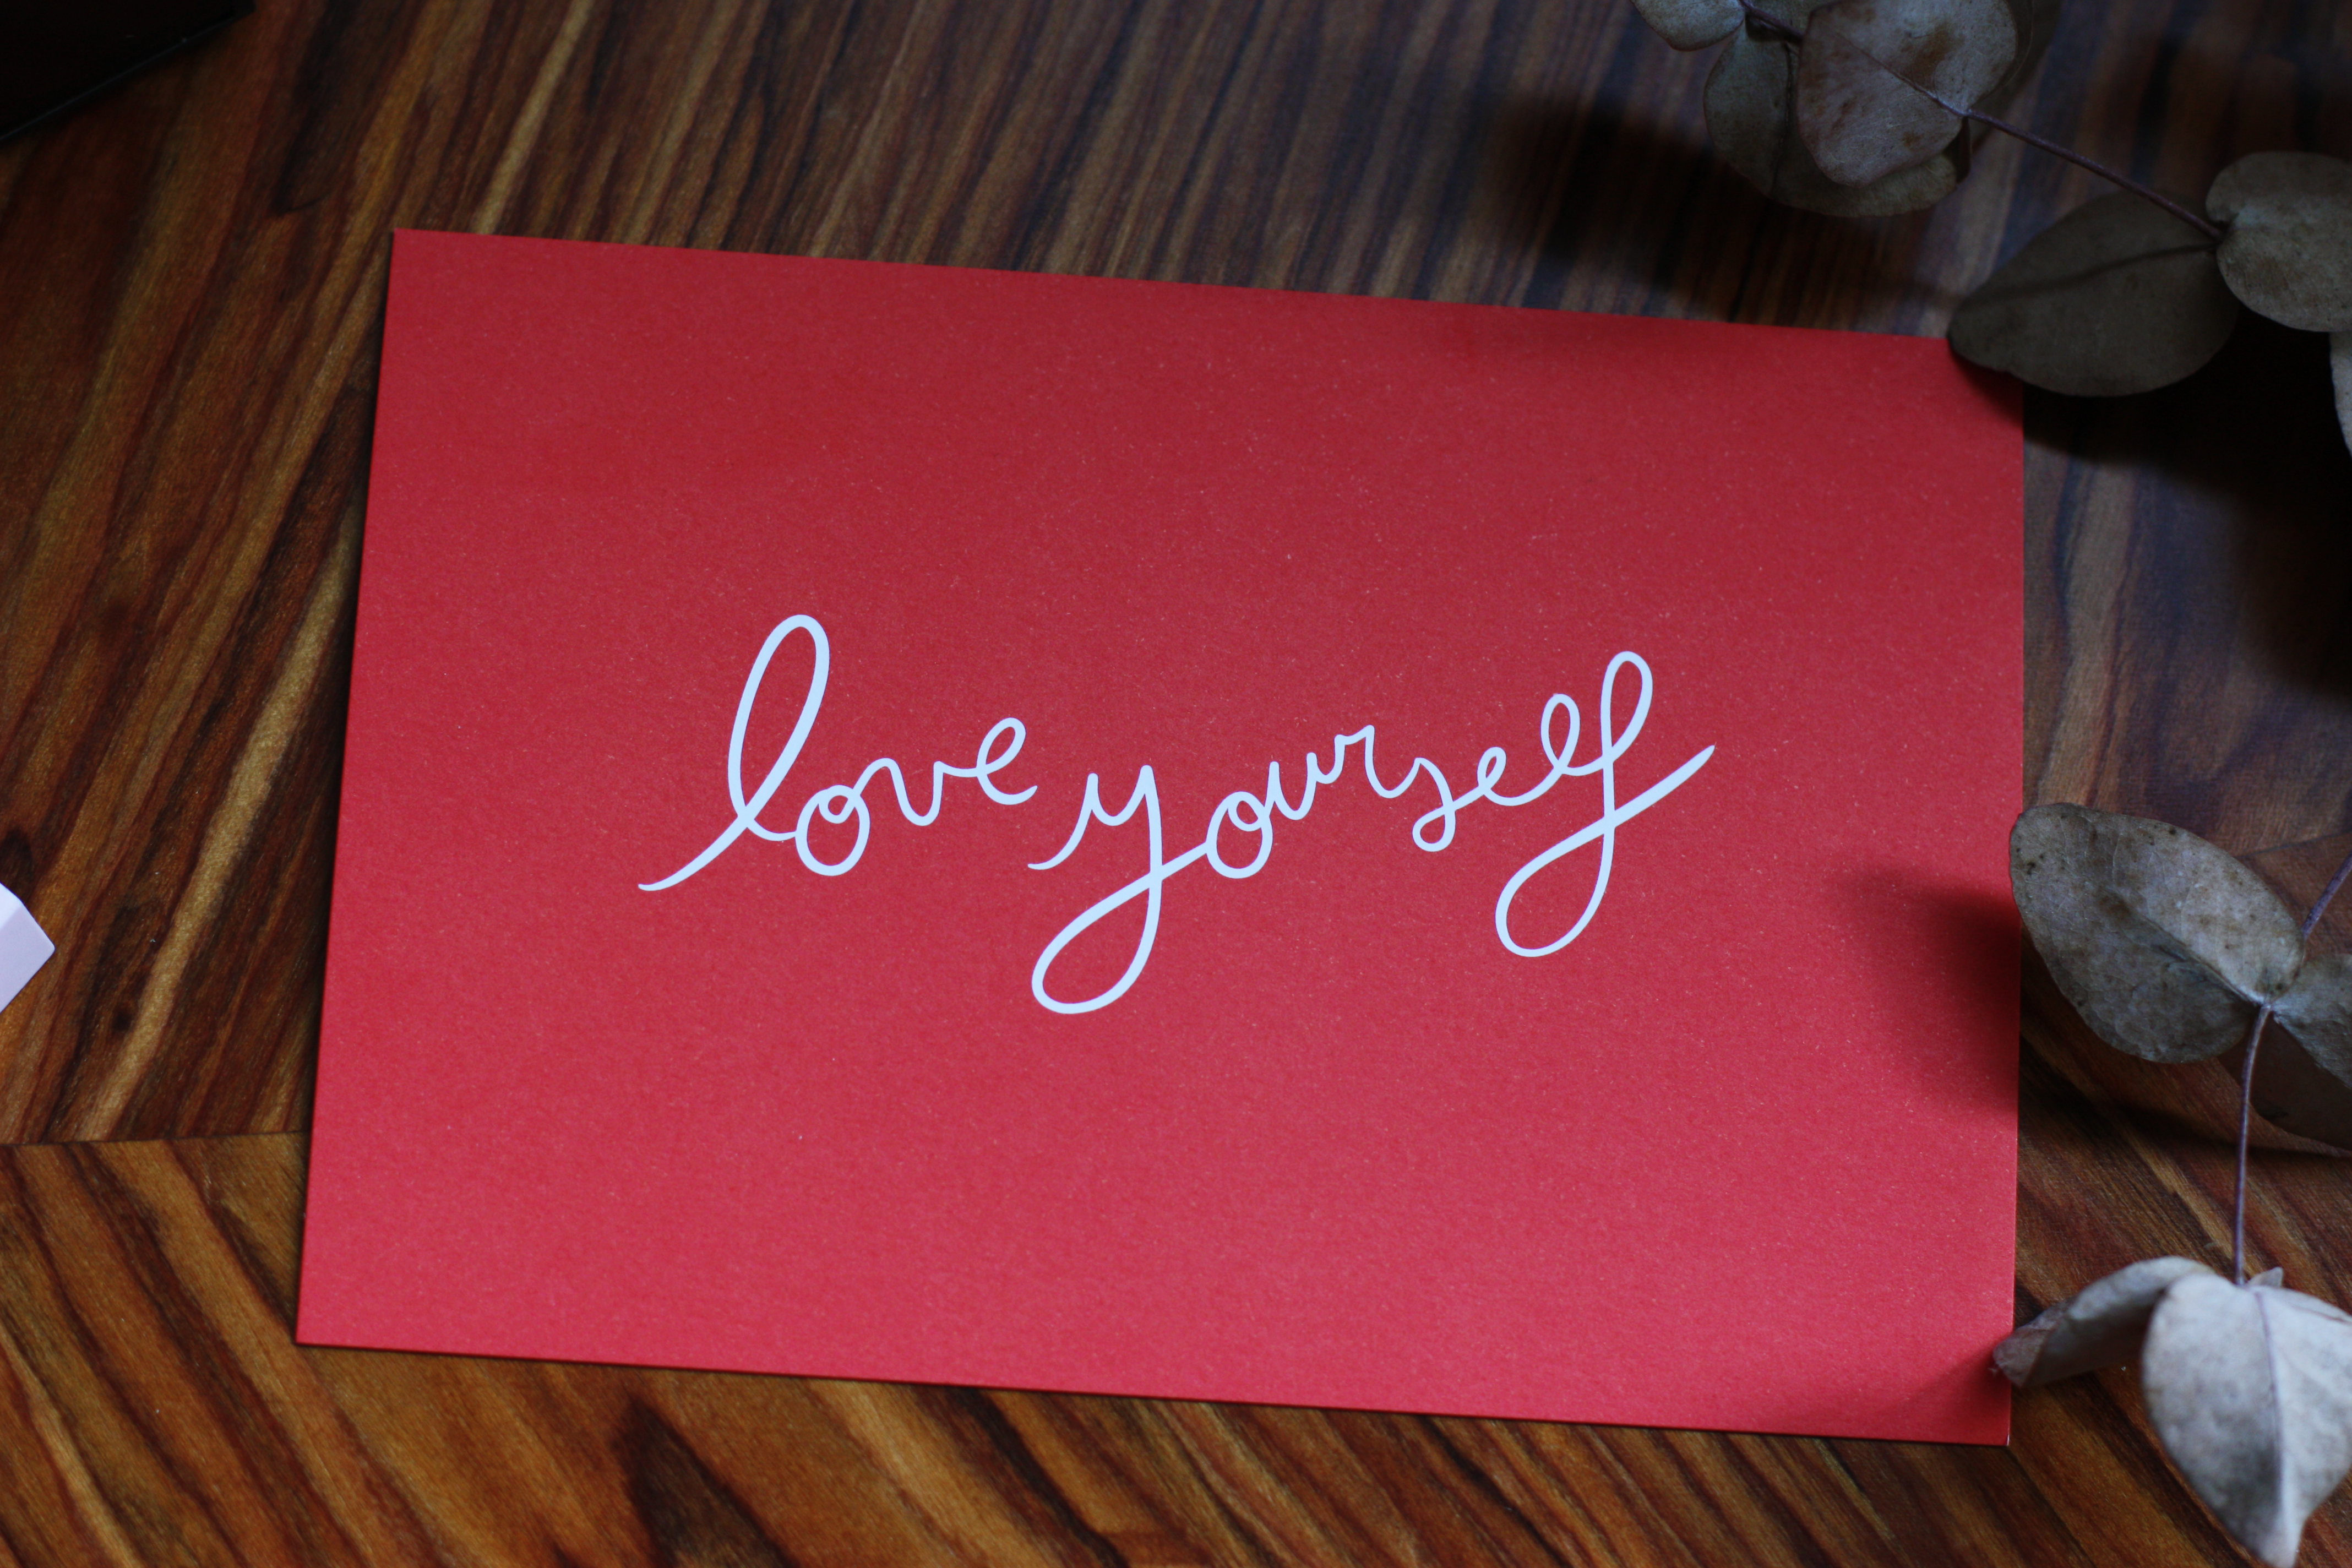 love yourself